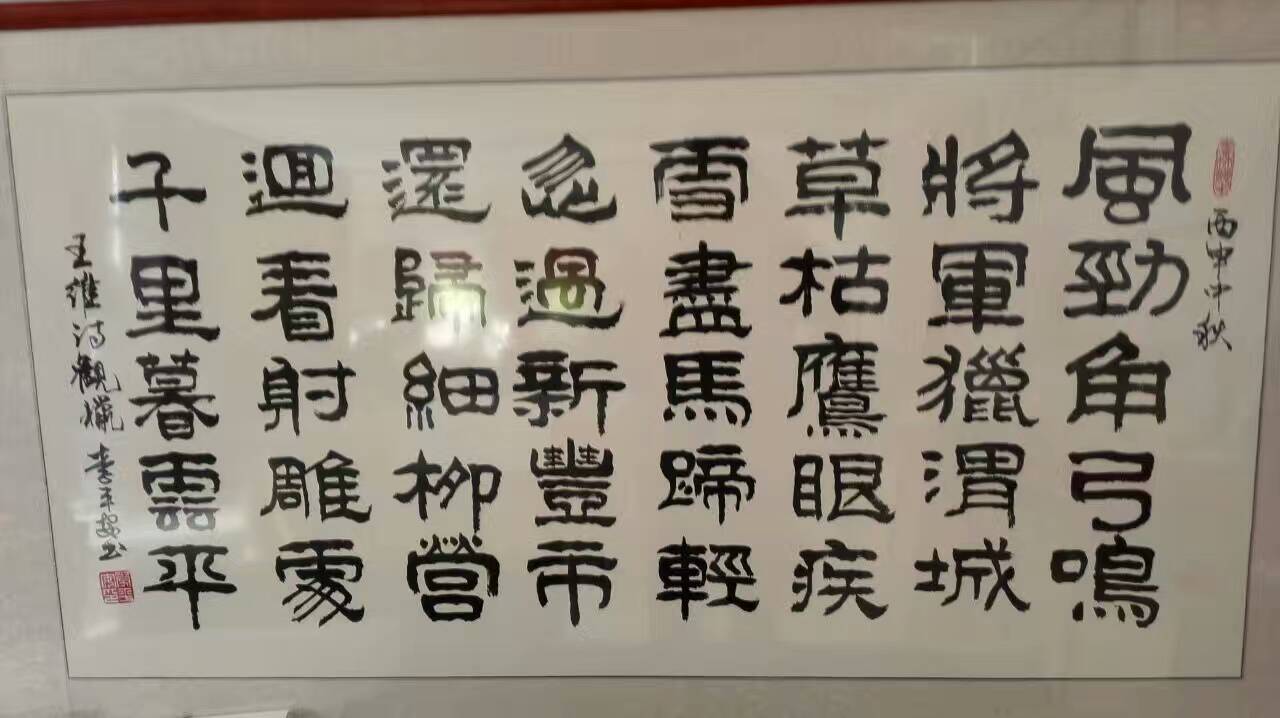 丙申中秋
風勁角弓鳴
將軍獵渭城
草枯鷹眼疾
雪盡馬蹄輕
忽過新豐市
還歸細柳營
迴看射雕處
千里暮雲平
王維詩觀獵 李平安书